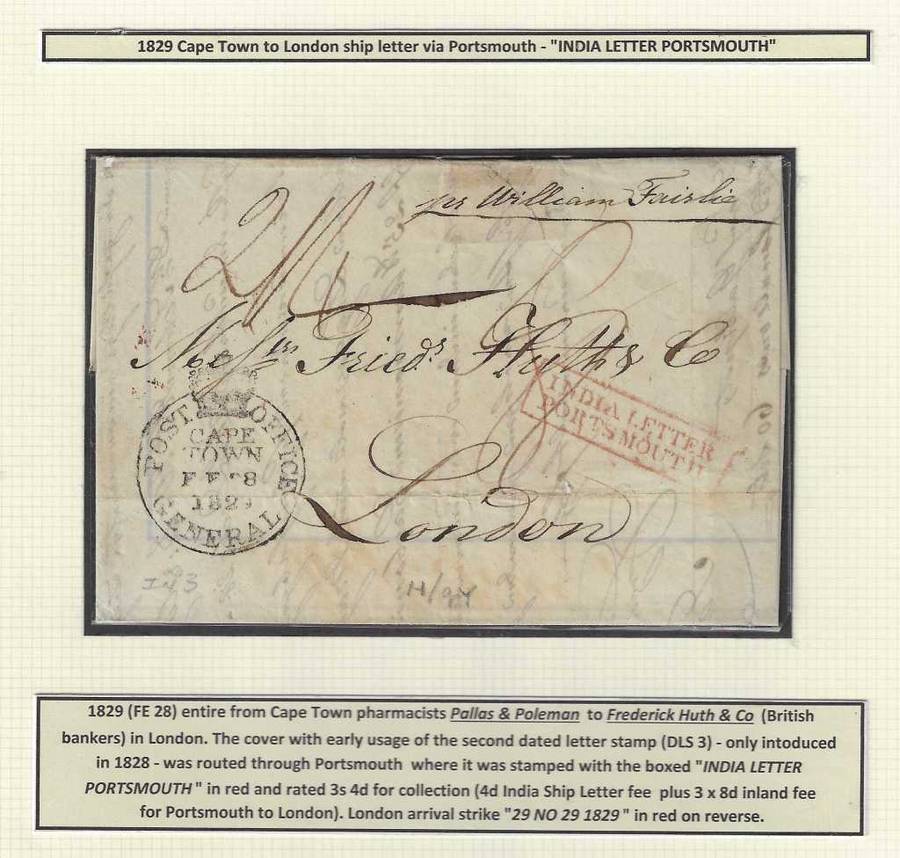 1829 Cape Town to London ship letter via Portsmouth - "INDIA LETTER PORTSMOUTH"
pr William Fairlie
Messrs Friedk Huth & Co
INDIA LETTER
PORTSMOUTH
POST OFFICE
CAPE
TOWN
1829
GENERAL
London
1829 (FE 28) entire from Cape Town pharmacists Pallas & Poleman to Frederick Huth & Co (British
bankers) in London. The cover with early usage of the second dated letter stamp (DLS 3) - only intoduced
in 1828 - was routed through Portsmouth where it was stamped with the boxed "INDIA LETTER
PORTSMOUTH" in red and rated 3s 4d for collection (4d India Ship Letter fee plus 3 x 8d inland fee
for Portsmouth to London). London arrival strike "29 NO 29 1829" in red on reverse.